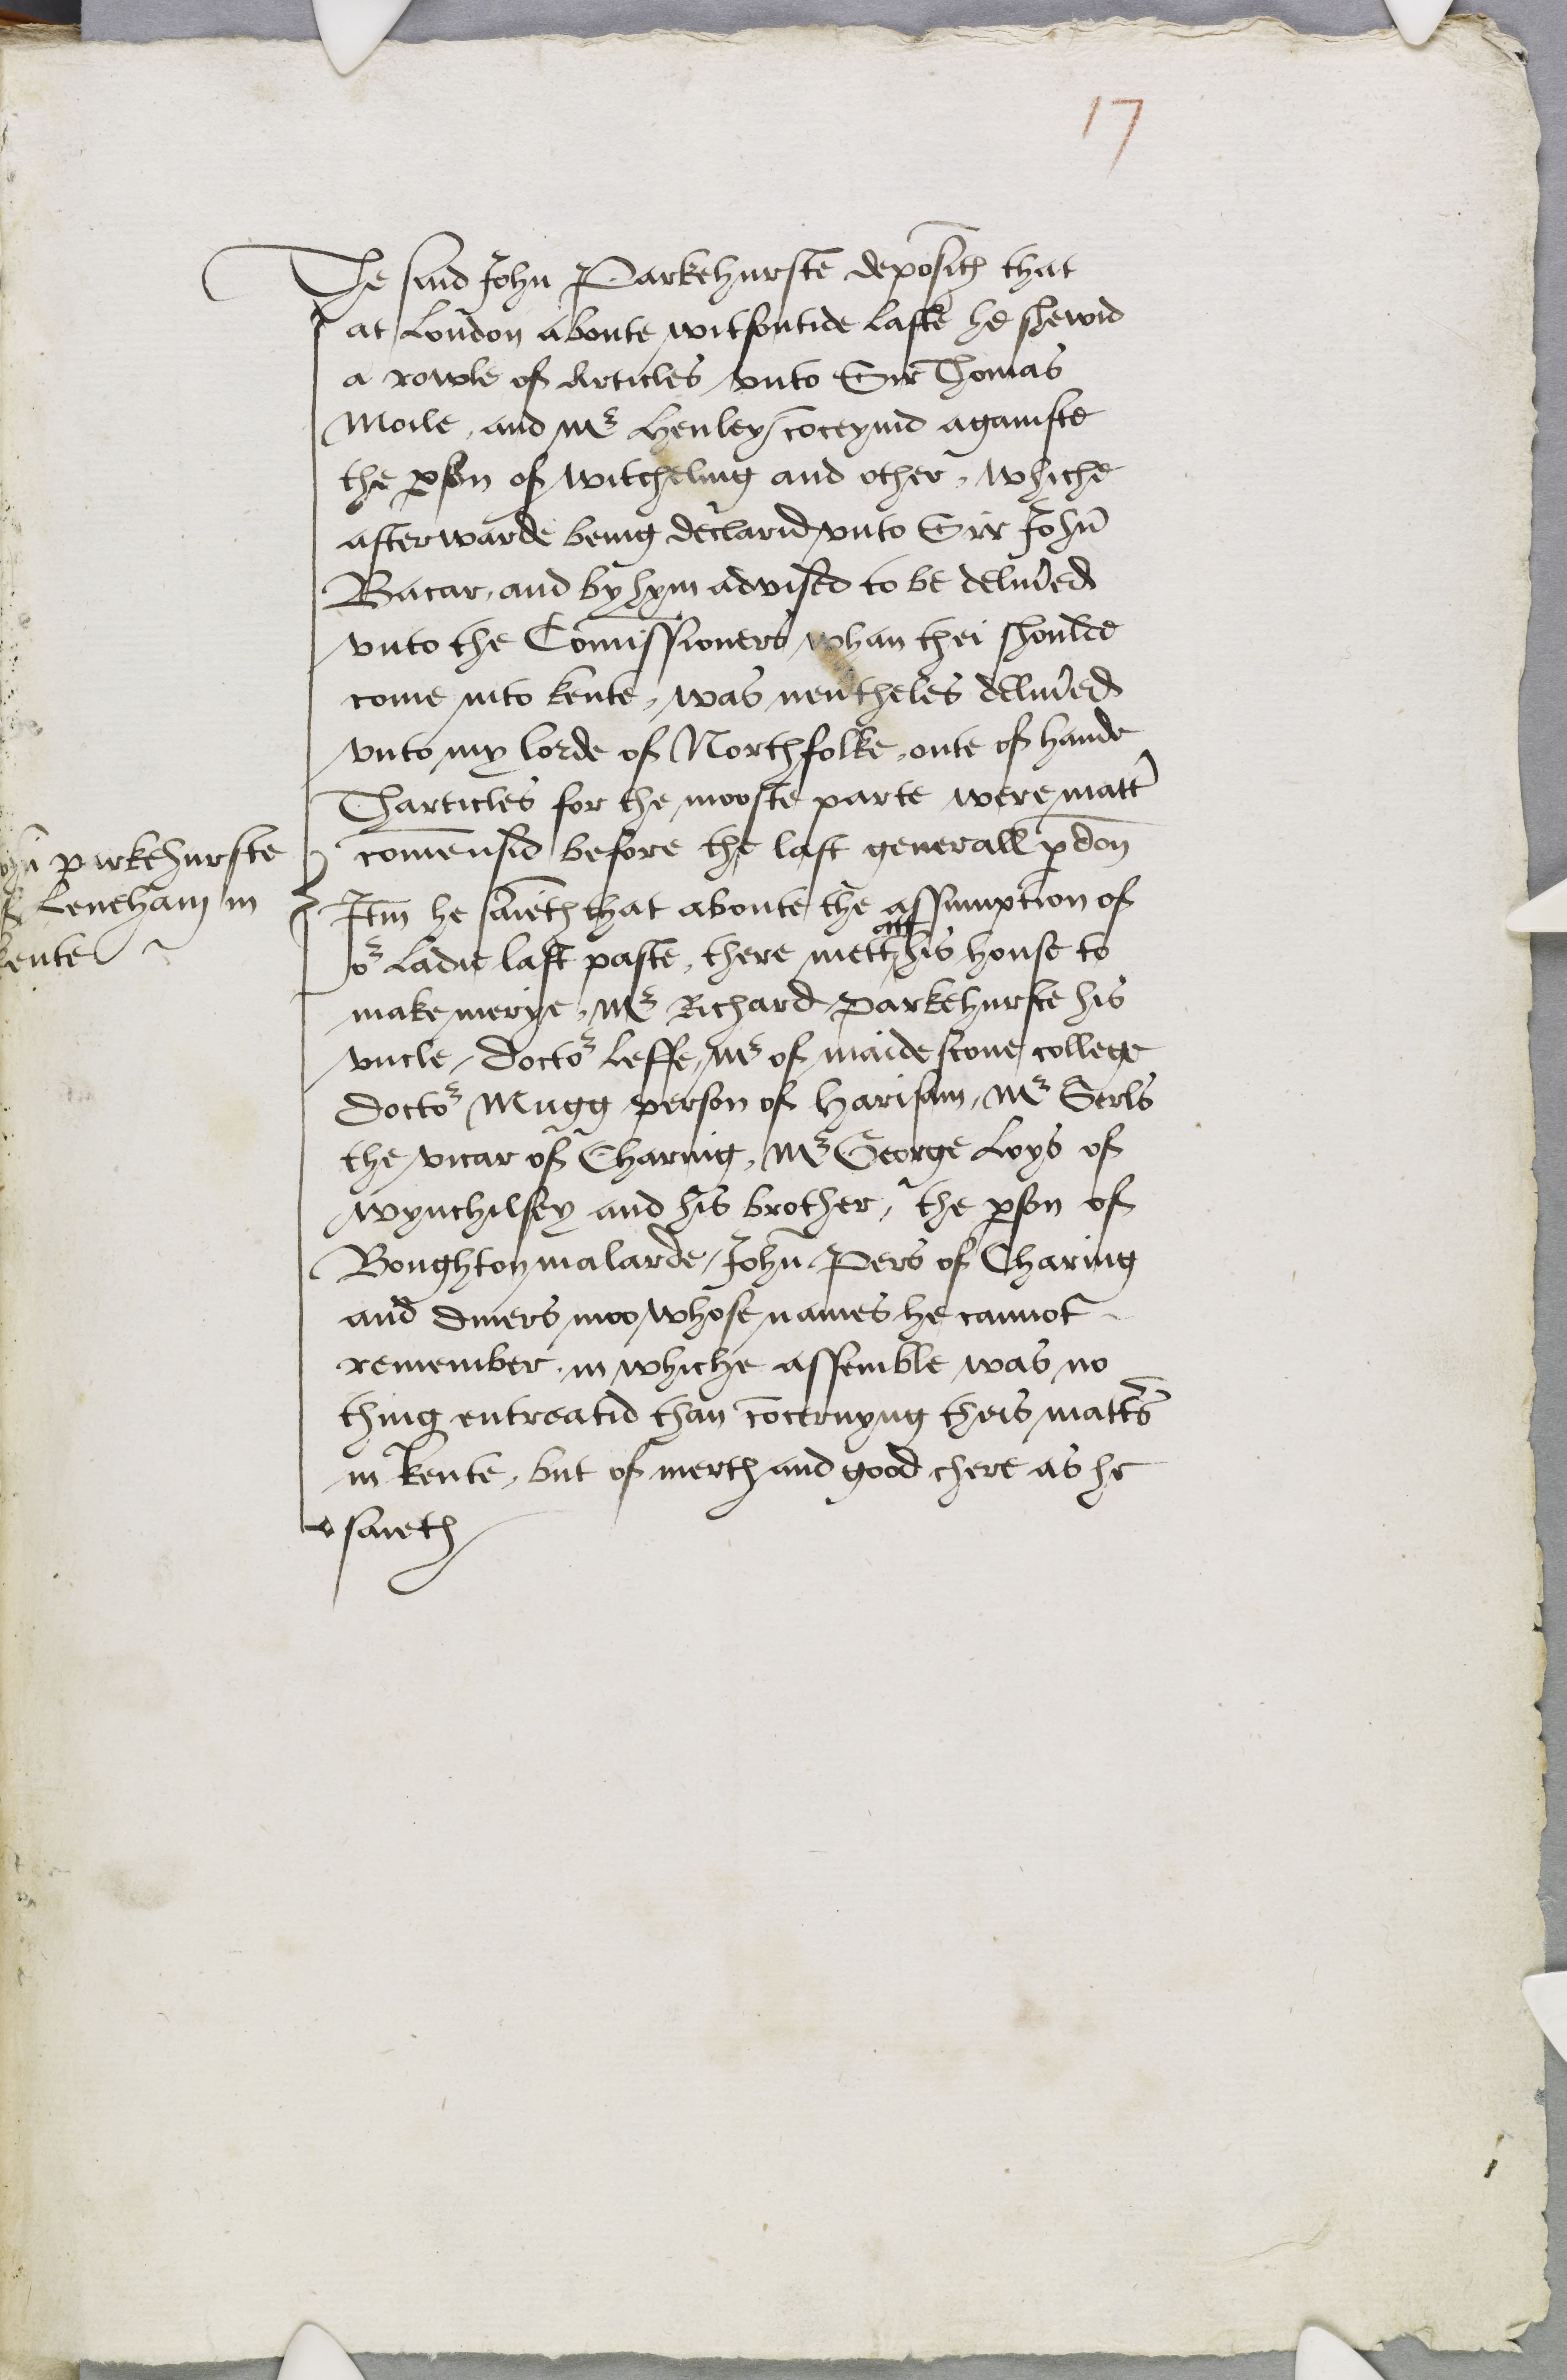 17
The said John Parkehurste deposith that
at London aboute witsontide laste he shewid
a rowle of Articles vnto Sir Thomas
Moile, and Mr Henley, coceyuid againste
the pson of Witcheling and other, whiche
afterwarde being declarid vnto Sir John
Bacar, and by hym advised to be deliued
vnto the Comissioners whan thei shoulde
come into kente, was neutheles deliued
vnto my lorde of Northfolke, oute of hande
Tharticles for the mooste parte were matt
comensid before the last generall pdon
John parkehurste
of Leneham in
kente
Itm he saieth that aboute the assumption of
or Ladie last paste, there mett att his house to
make merye, Mr Richard Parkehurste his
vncle, Doctor Leffe, Mr of maidestone college
Doctor Mugg person of Harisam, Mr Serls
the vicar of Charing, Mr George Loys of
wynchilsey and his brother, the pson of
Boughton malarde, John Pers of Charing
and diuers moo whose names he cannot
remember, in whiche assemble was no
thing entreatid than cocernyng theis matts
in kente, but of merth and good chere as he
saieth